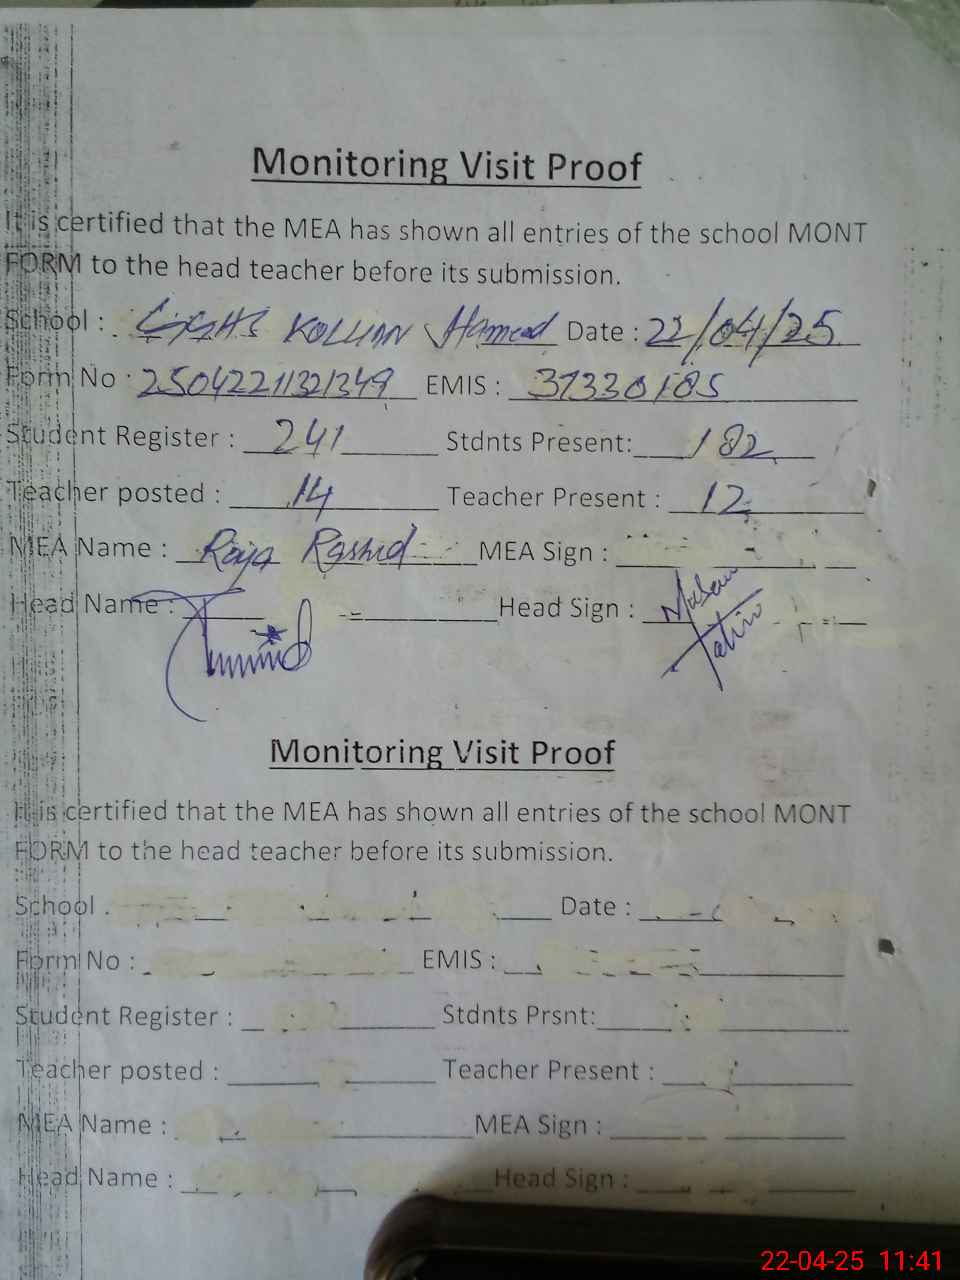 Monitoring Visit Proof
It is certified that the MEA has shown all entries of the school MONT
FORM to the head teacher before its submission.
School : GGHS KOLLIAN Hameed Date : 22/04/25
Form No : 25042211321349 EMIS : 37330185
Student Register : 241 Stdnts Present: 182
Teacher posted : 14 Teacher Present : 12
MEA Name : Raja Rashid MEA Sign :
Head Name : Head Sign :
Monitoring Visit Proof
It is certified that the MEA has shown all entries of the school MONT
FORM to the head teacher before its submission.
School . Date :
Form No : EMIS :
Student Register : Stdnts Prsnt:
Teacher posted : Teacher Present :
MEA Name : MEA Sign :
Head Name : Head Sign :
22-04-25 11:41